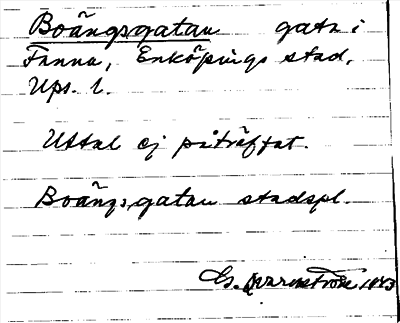 Boängsgatan gata i
Fanna, Enköpings stad,
Ups. l.
Uttal ej påträffat.
Boängsgatan stadspl.
Es. Qvarnström 1943